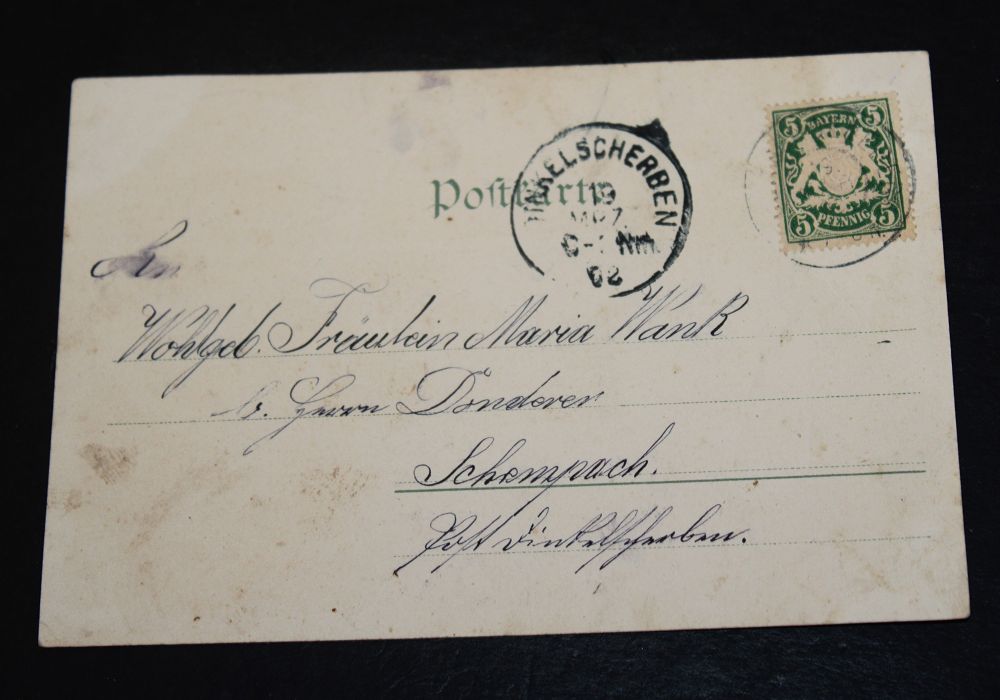 Postkarte
DINKELSCHERBEN
19
MRZ
Nm.
02
5 BAYERN 5
5 PFENNIG 5
An
Wohlgeb. Fräulein Maria Wank
b. Herrn Donderer
Schempach.
Post Dinkelscherben.